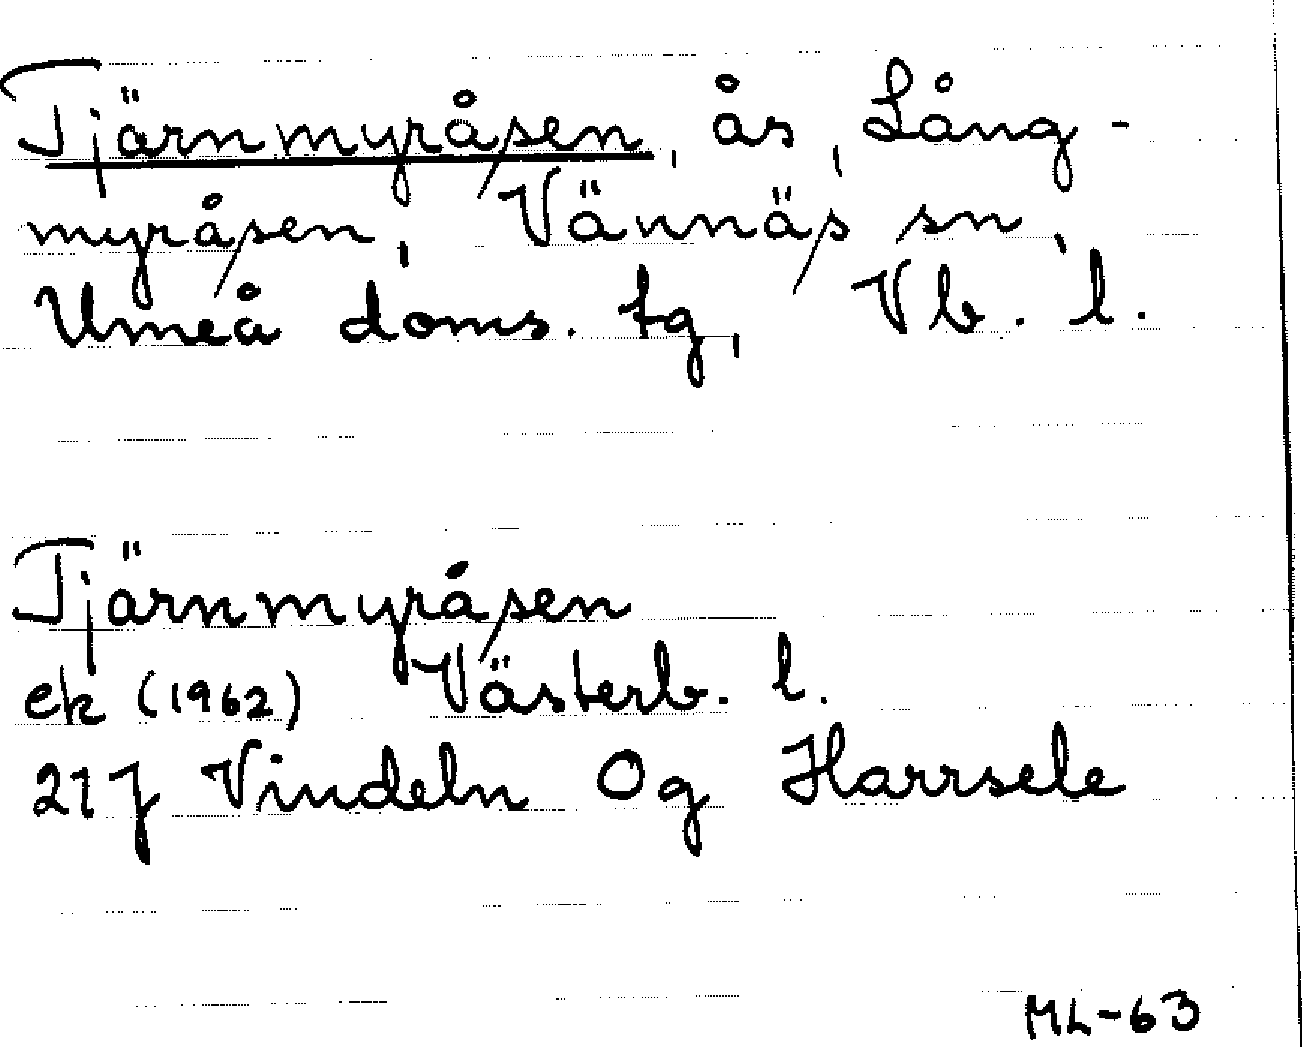 Tjärnmyråsen, ås, Lång-
myråsen, Vännäs sn,
Umeå doms. tg, Vb. l.
Tjärnmyråsen
ek (1962) Västerb. l.
21J Vindeln Og Harrsele
ML-63